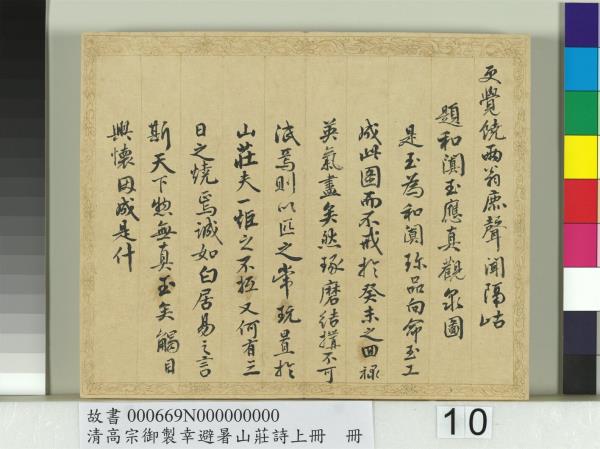 更覺饒兩翁塵聲聞隔岵
題和闐玉應真觀泉圖
是玉為和闐珍品向命玉工
成此圖而不戒於癸未之回祿
英氣盡矣然琢磨結搆不可
泯焉則以匹之常玩置於
山莊夫一炬之不極又何有三
日之燒焉誠如白居易之言
斯天下惣無真玉矣觸目
興懷因成是什
故書 000669N000000000
清高宗御製幸避暑山莊詩上冊 冊
10